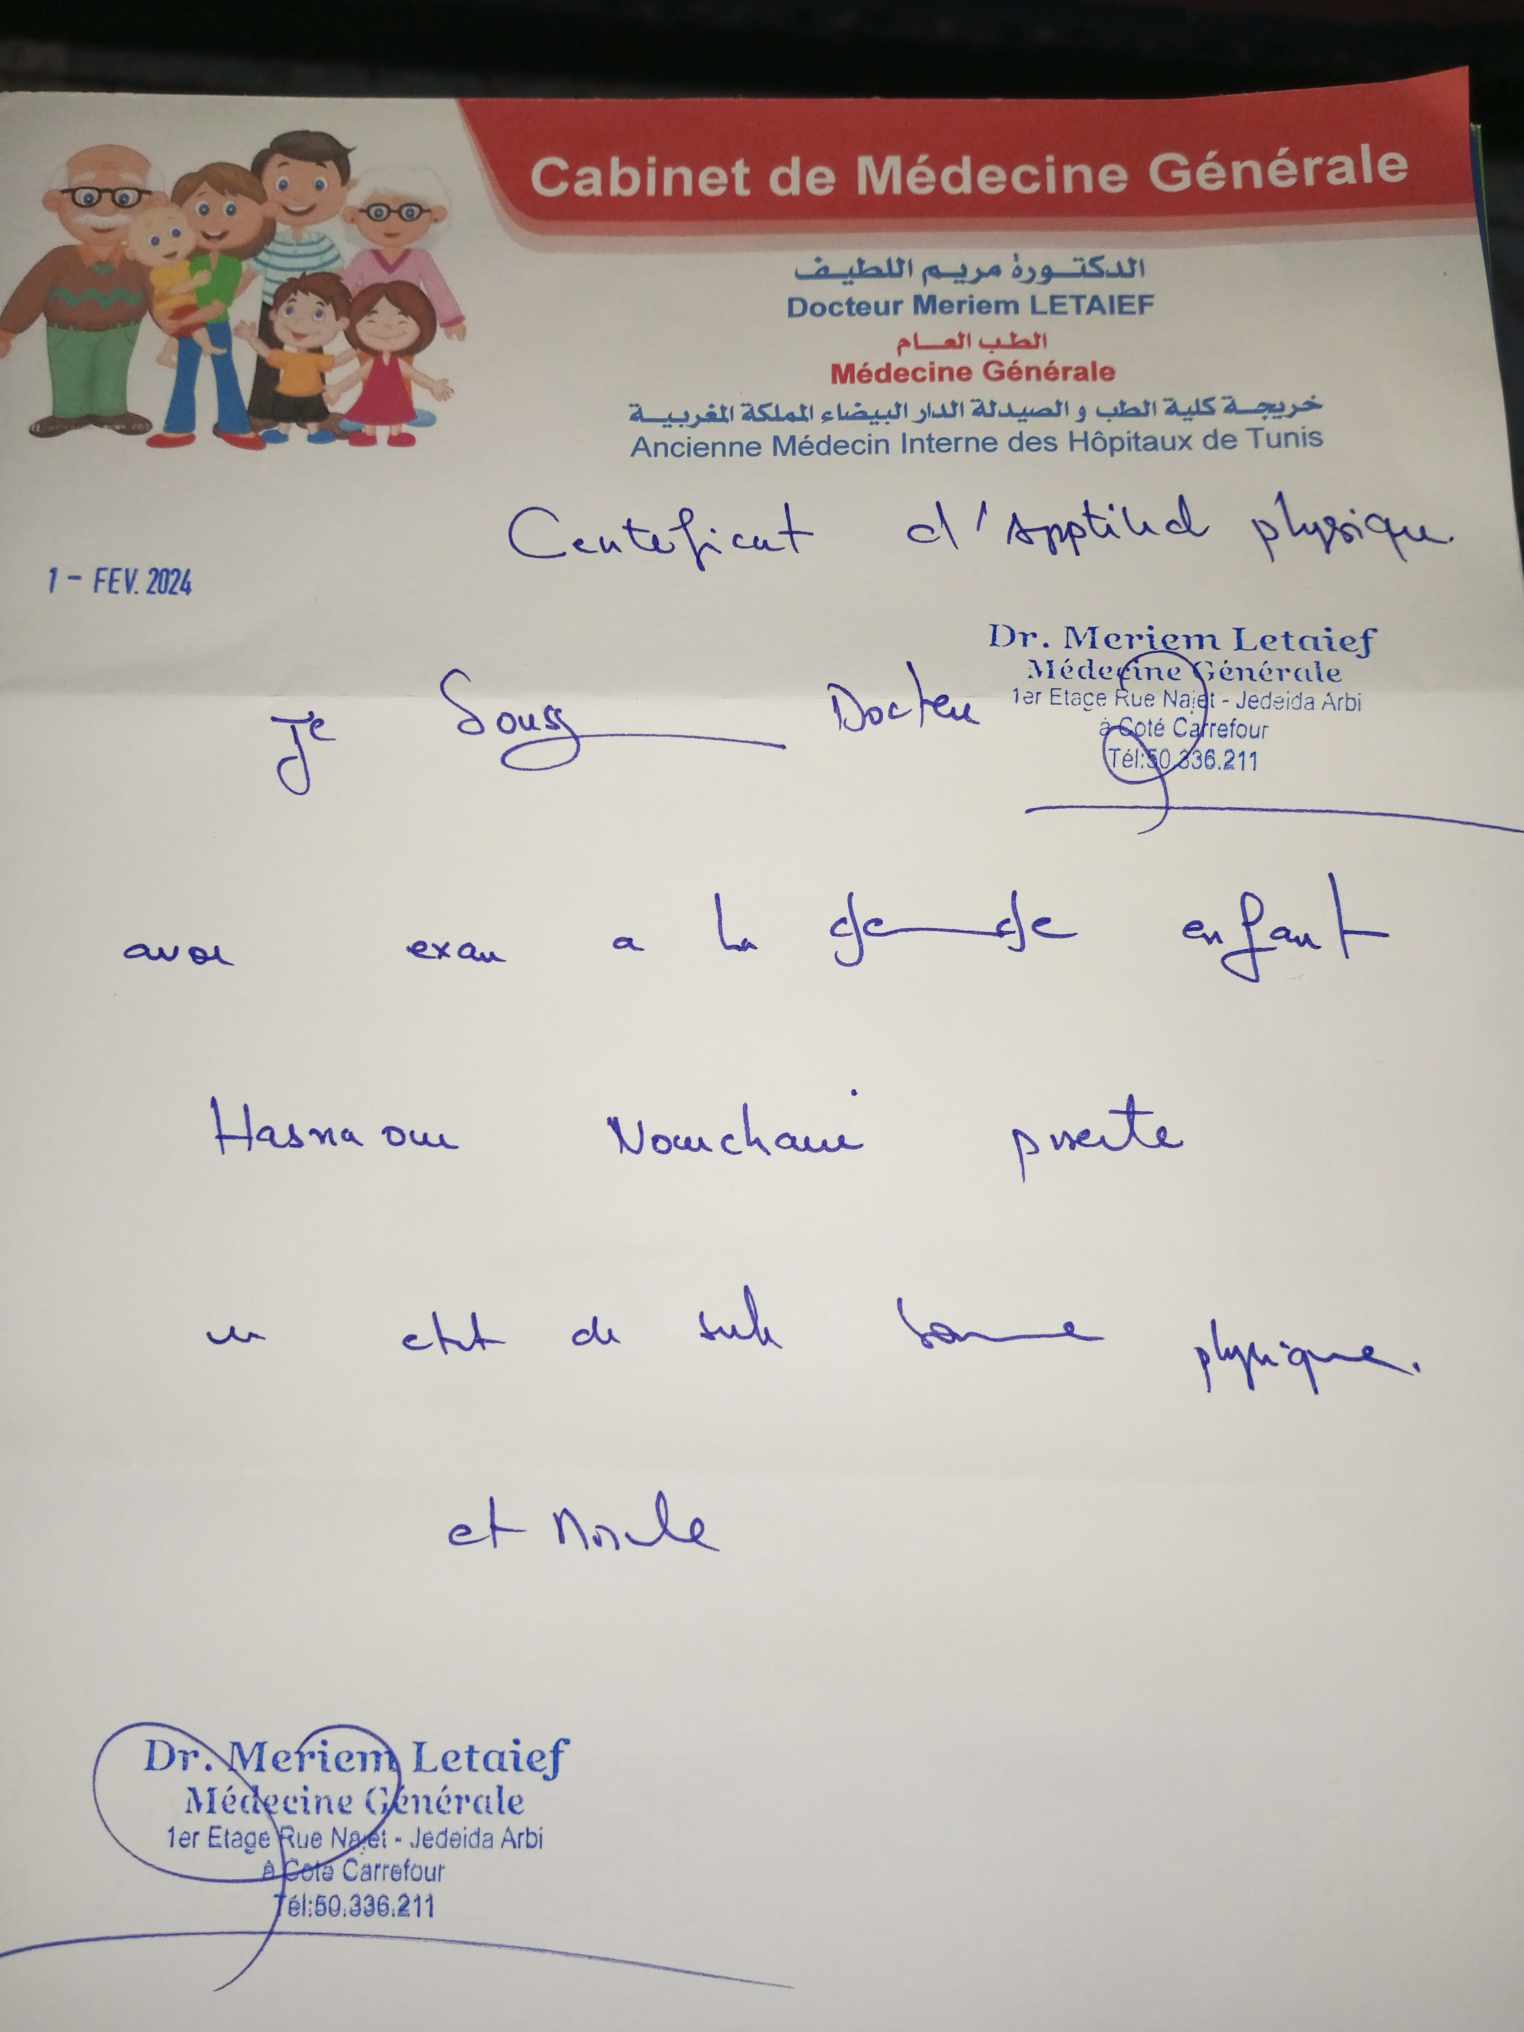 Cabinet de Médecine Générale
الدكتورة مريم اللطيف
Docteur Meriem LETAIEF
الطب العام
Médecine Générale
خريجة كلية الطب و الصيدلة الدار البيضاء المملكة المغربية
Ancienne Médecin Interne des Hôpitaux de Tunis
Certificat d'Apptitud physique
1 - FEV. 2024
Dr. Meriem Letaief
Médecine Générale
1er Etage Rue Najet - Jedeida Arbi
à Coté Carrefour
Tél:50.336.211
Je Souss Docteu
avoi exan a la de enfant
Hasnaoui
et de bonne physique.
et
Dr. Meriem Letaief
Médecine Générale
1er Etage Rue Najet - Jedeida Arbi
à Coté Carrefour
Tél:50.336.211